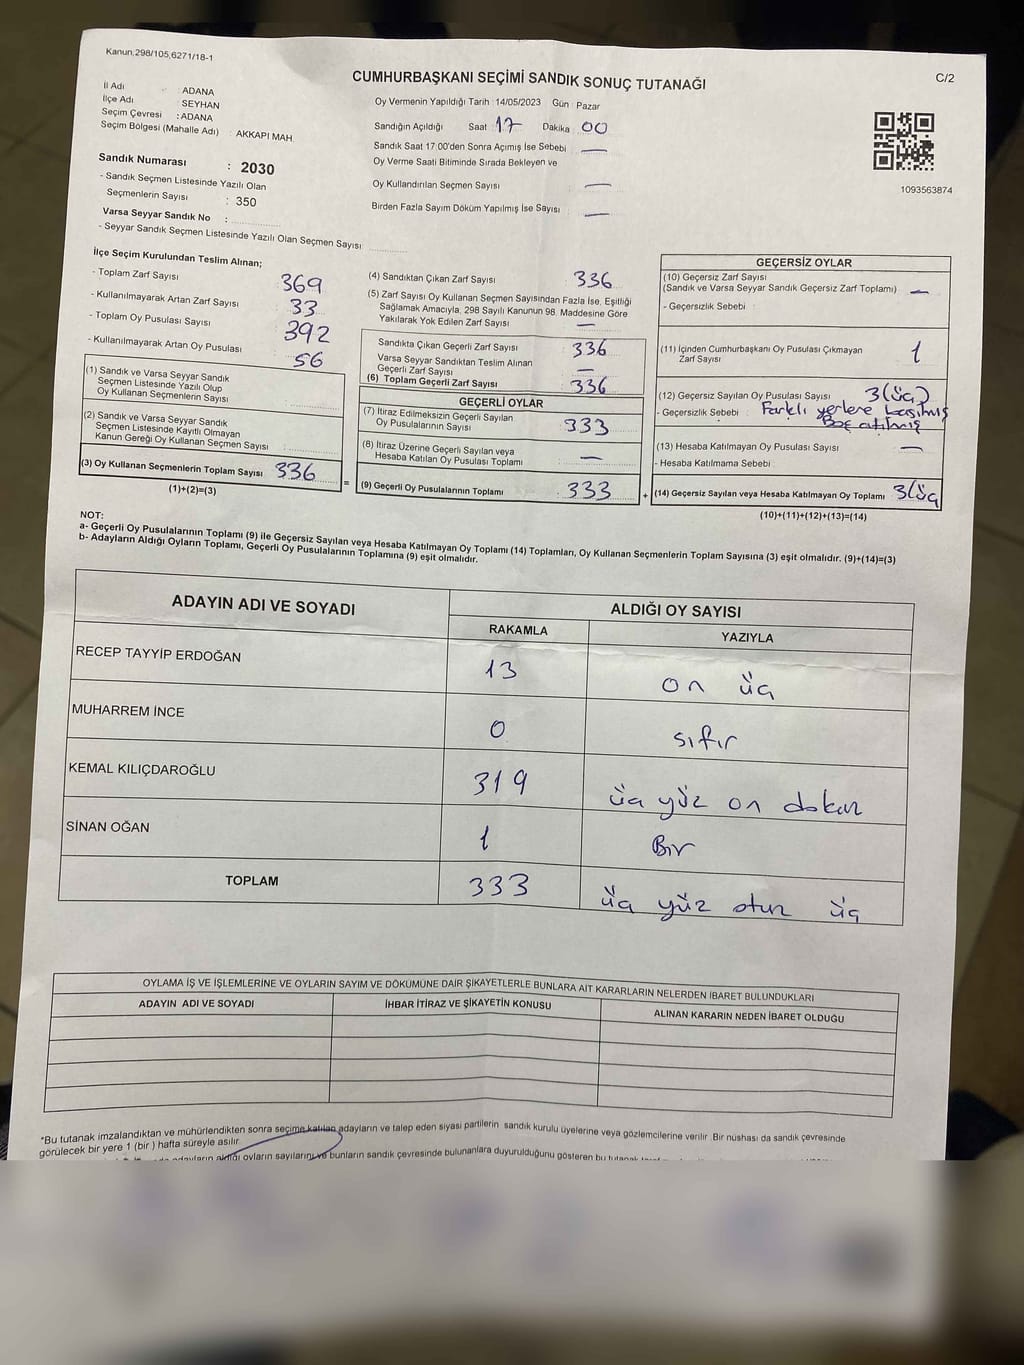 Kanun.298/105,6271/18-1
CUMHURBAŞKANI SEÇİMİ SANDIK SONUÇ TUTANAĞI
C/2
İl Adı : ADANA
İlçe Adı : SEYHAN
Seçim Çevresi : ADANA
Seçim Bölgesi (Mahalle Adı) : AKKAPI MAH.
Sandık Numarası : 2030
- Sandık Seçmen Listesinde Yazılı Olan
Seçmenlerin Sayısı : 350
Varsa Seyyar Sandık No :
- Seyyar Sandık Seçmen Listesinde Yazılı Olan Seçmen Sayısı
Oy Vermenin Yapıldığı Tarih : 14/05/2023 Gün : Pazar
Sandığın Açıldığı Saat 17 Dakika 00
Sandık Saat 17.00'den Sonra Açımış İse Sebebi —
Oy Verme Saati Bitiminde Sırada Bekleyen ve
Oy Kullandırılan Seçmen Sayısı —
Birden Fazla Sayım Döküm Yapılmış İse Sayısı —
1093563874
İlçe Seçim Kurulundan Teslim Alınan;
- Toplam Zarf Sayısı 369
- Kullanılmayarak Artan Zarf Sayısı 33
- Toplam Oy Pusulası Sayısı 392
- Kullanılmayarak Artan Oy Pusulası 56
(1) Sandık ve Varsa Seyyar Sandık
Seçmen Listesinde Yazılı Olup
Oy Kullanan Seçmenlerin Sayısı
(2) Sandık ve Varsa Seyyar Sandık
Seçmen Listesinde Kayıtlı Olmayan
Kanun Gereği Oy Kullanan Seçmen Sayısı
(3) Oy Kullanan Seçmenlerin Toplam Sayısı 336
(1)+(2)=(3)
=
(4) Sandıktan Çıkan Zarf Sayısı 336
(5) Zarf Sayısı Oy Kullanan Seçmen Sayısından Fazla İse, Eşitliği
Sağlamak Amacıyla, 298 Sayılı Kanunun 98. Maddesine Göre
Yakılarak Yok Edilen Zarf Sayısı —
Sandıkta Çıkan Geçerli Zarf Sayısı 336
Varsa Seyyar Sandıktan Teslim Alınan
Geçerli Zarf Sayısı —
(6) Toplam Geçerli Zarf Sayısı 336
GEÇERLİ OYLAR
(7) İtiraz Edilmeksizin Geçerli Sayılan
Oy Pusulalarının Sayısı 333
(8) İtiraz Üzerine Geçerli Sayılan veya
Hesaba Katılan Oy Pusulası Toplamı —
(9) Geçerli Oy Pusulalarının Toplamı : 333
+
GEÇERSİZ OYLAR
(10) Geçersiz Zarf Sayısı
(Sandık ve Varsa Seyyar Sandık Geçersiz Zarf Toplamı) —
- Geçersizlik Sebebi :
(11) İçinden Cumhurbaşkanı Oy Pusulası Çıkmayan
Zarf Sayısı 1
(12) Geçersiz Sayılan Oy Pusulası Sayısı 3(üç)
- Geçersizlik Sebebi : Farklı yerlere basılmış
Boş atılmış
(13) Hesaba Katılmayan Oy Pusulası Sayısı —
- Hesaba Katılmama Sebebi
(14) Geçersiz Sayılan veya Hesaba Katılmayan Oy Toplamı 3(üç
(10)+(11)+(12)+(13)=(14)
NOT:
a- Geçerli Oy Pusulalarının Toplamı (9) ile Geçersiz Sayılan veya Hesaba Katılmayan Oy Toplamı (14) Toplamları, Oy Kullanan Seçmenlerin Toplam Sayısına (3) eşit olmalıdır. (9)+(14)=(3)
b- Adayların Aldığı Oyların Toplamı, Geçerli Oy Pusulalarının Toplamına (9) eşit olmalıdır.
ADAYIN ADI VE SOYADI
ALDIĞI OY SAYISI
RAKAMLA YAZIYLA
RECEP TAYYİP ERDOĞAN 13 on üç
MUHARREM İNCE 0 sıfır
KEMAL KILIÇDAROĞLU 319 üç yüz on dokuz
SİNAN OĞAN 1 Bir
TOPLAM 333 üç yüz otuz üç
OYLAMA İŞ VE İŞLEMLERİNE VE OYLARIN SAYIM VE DÖKÜMÜNE DAİR ŞİKAYETLERLE BUNLARA AİT KARARLARIN NELERDEN İBARET BULUNDUKLARI
ADAYIN ADI VE SOYADI İHBAR İTİRAZ VE ŞİKAYETİN KONUSU ALINAN KARARIN NEDEN İBARET OLDUĞU
*Bu tutanak imzalandıktan ve mühürlendikten sonra seçime katılan adayların ve talep eden siyasi partilerin sandık kurulu üyelerine veya gözlemcilerine verilir. Bir nüshası da sandık çevresinde
görülecek bir yere 1 (bir) hafta süreyle asılır.
adayların aldığı oyların sayılarını ve bunların sandık çevresinde bulunanlara duyurulduğunu gösteren bu